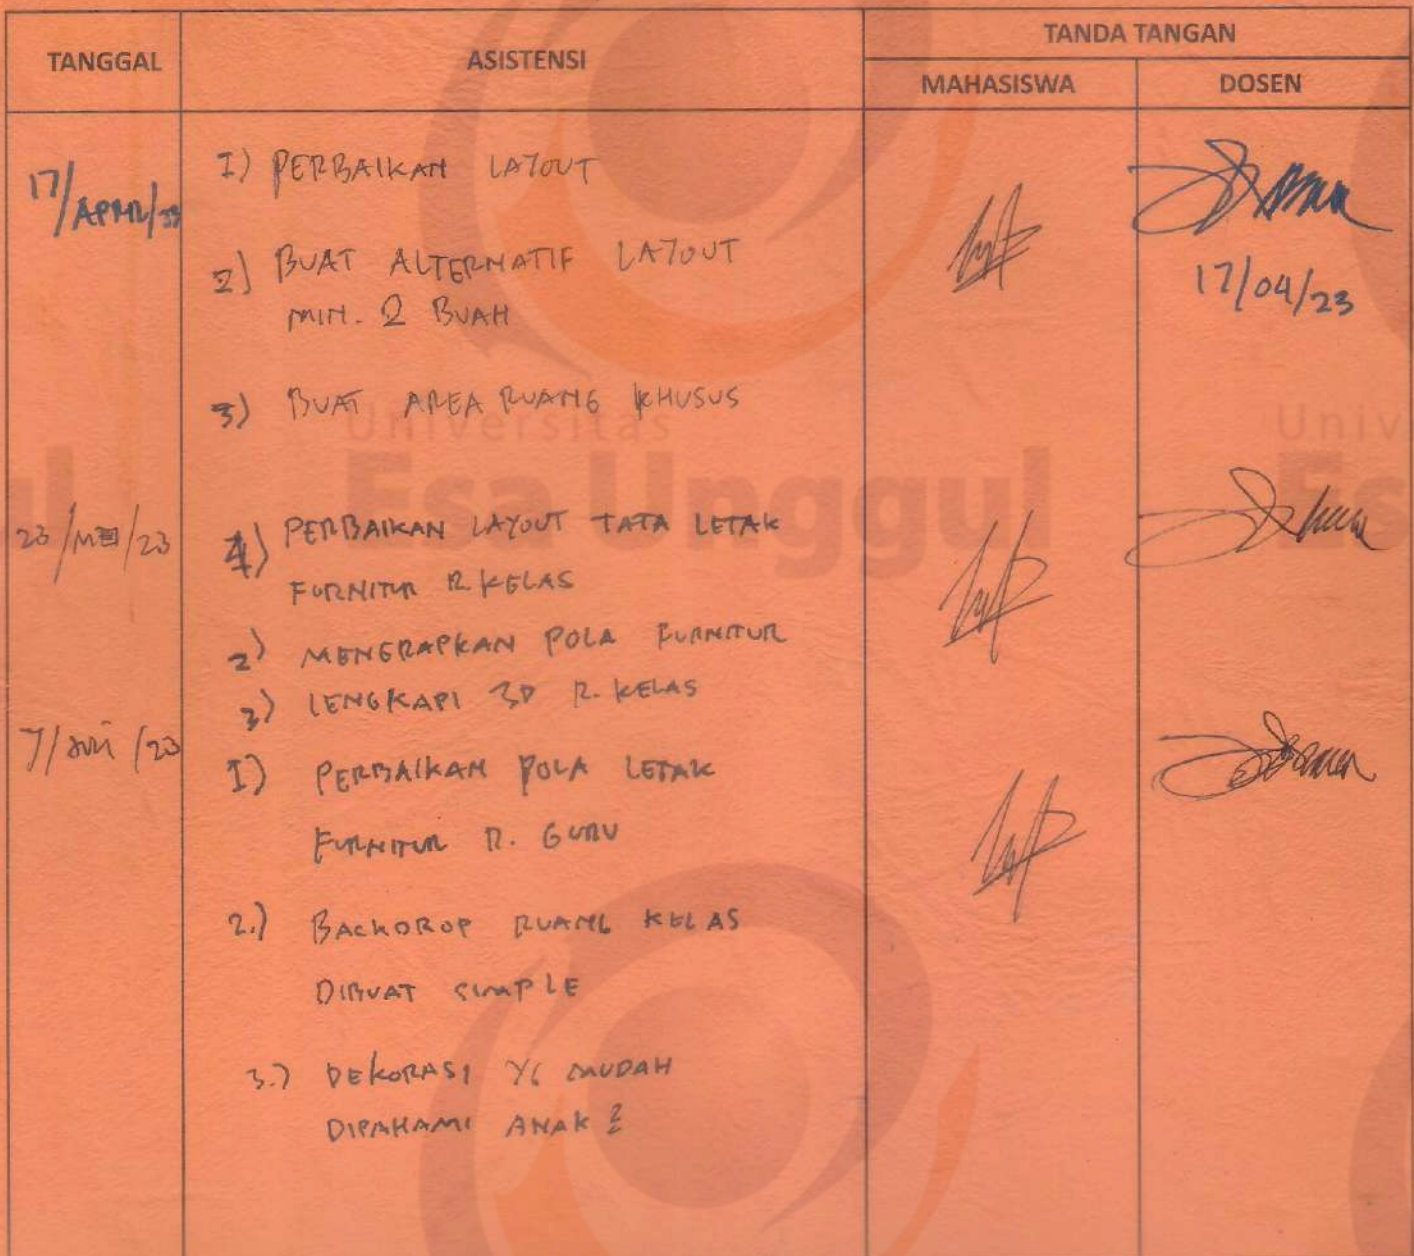 TANGGAL
ASISTENSI
TANDA TANGAN
MAHASISWA
DOSEN
17/APRIL/23
1) PERBAIKAN LAYOUT
2) BUAT ALTERNATIF LAYOUT
MIN. 2 BUAH
17/04/23
3) BUAT AREA RUANG KHUSUS
Universitas
Esa Unggul
Univ
Es
ul
23/MEI/23
1) PERBAIKAN LAYOUT TATA LETAK
FURNITUR R KELAS
2) MENERAPKAN POLA FURNITUR
3) LENGKAPI 3D R. KELAS
7/JULI/23
1) PERBAIKAN POLA LETAK
FURNITUR R. GURU
2.) BACKDROP RUANG KELAS
DIBUAT SIMPLE
3.) DEKORASI YG MUDAH
DIPAHAMI ANAK 2